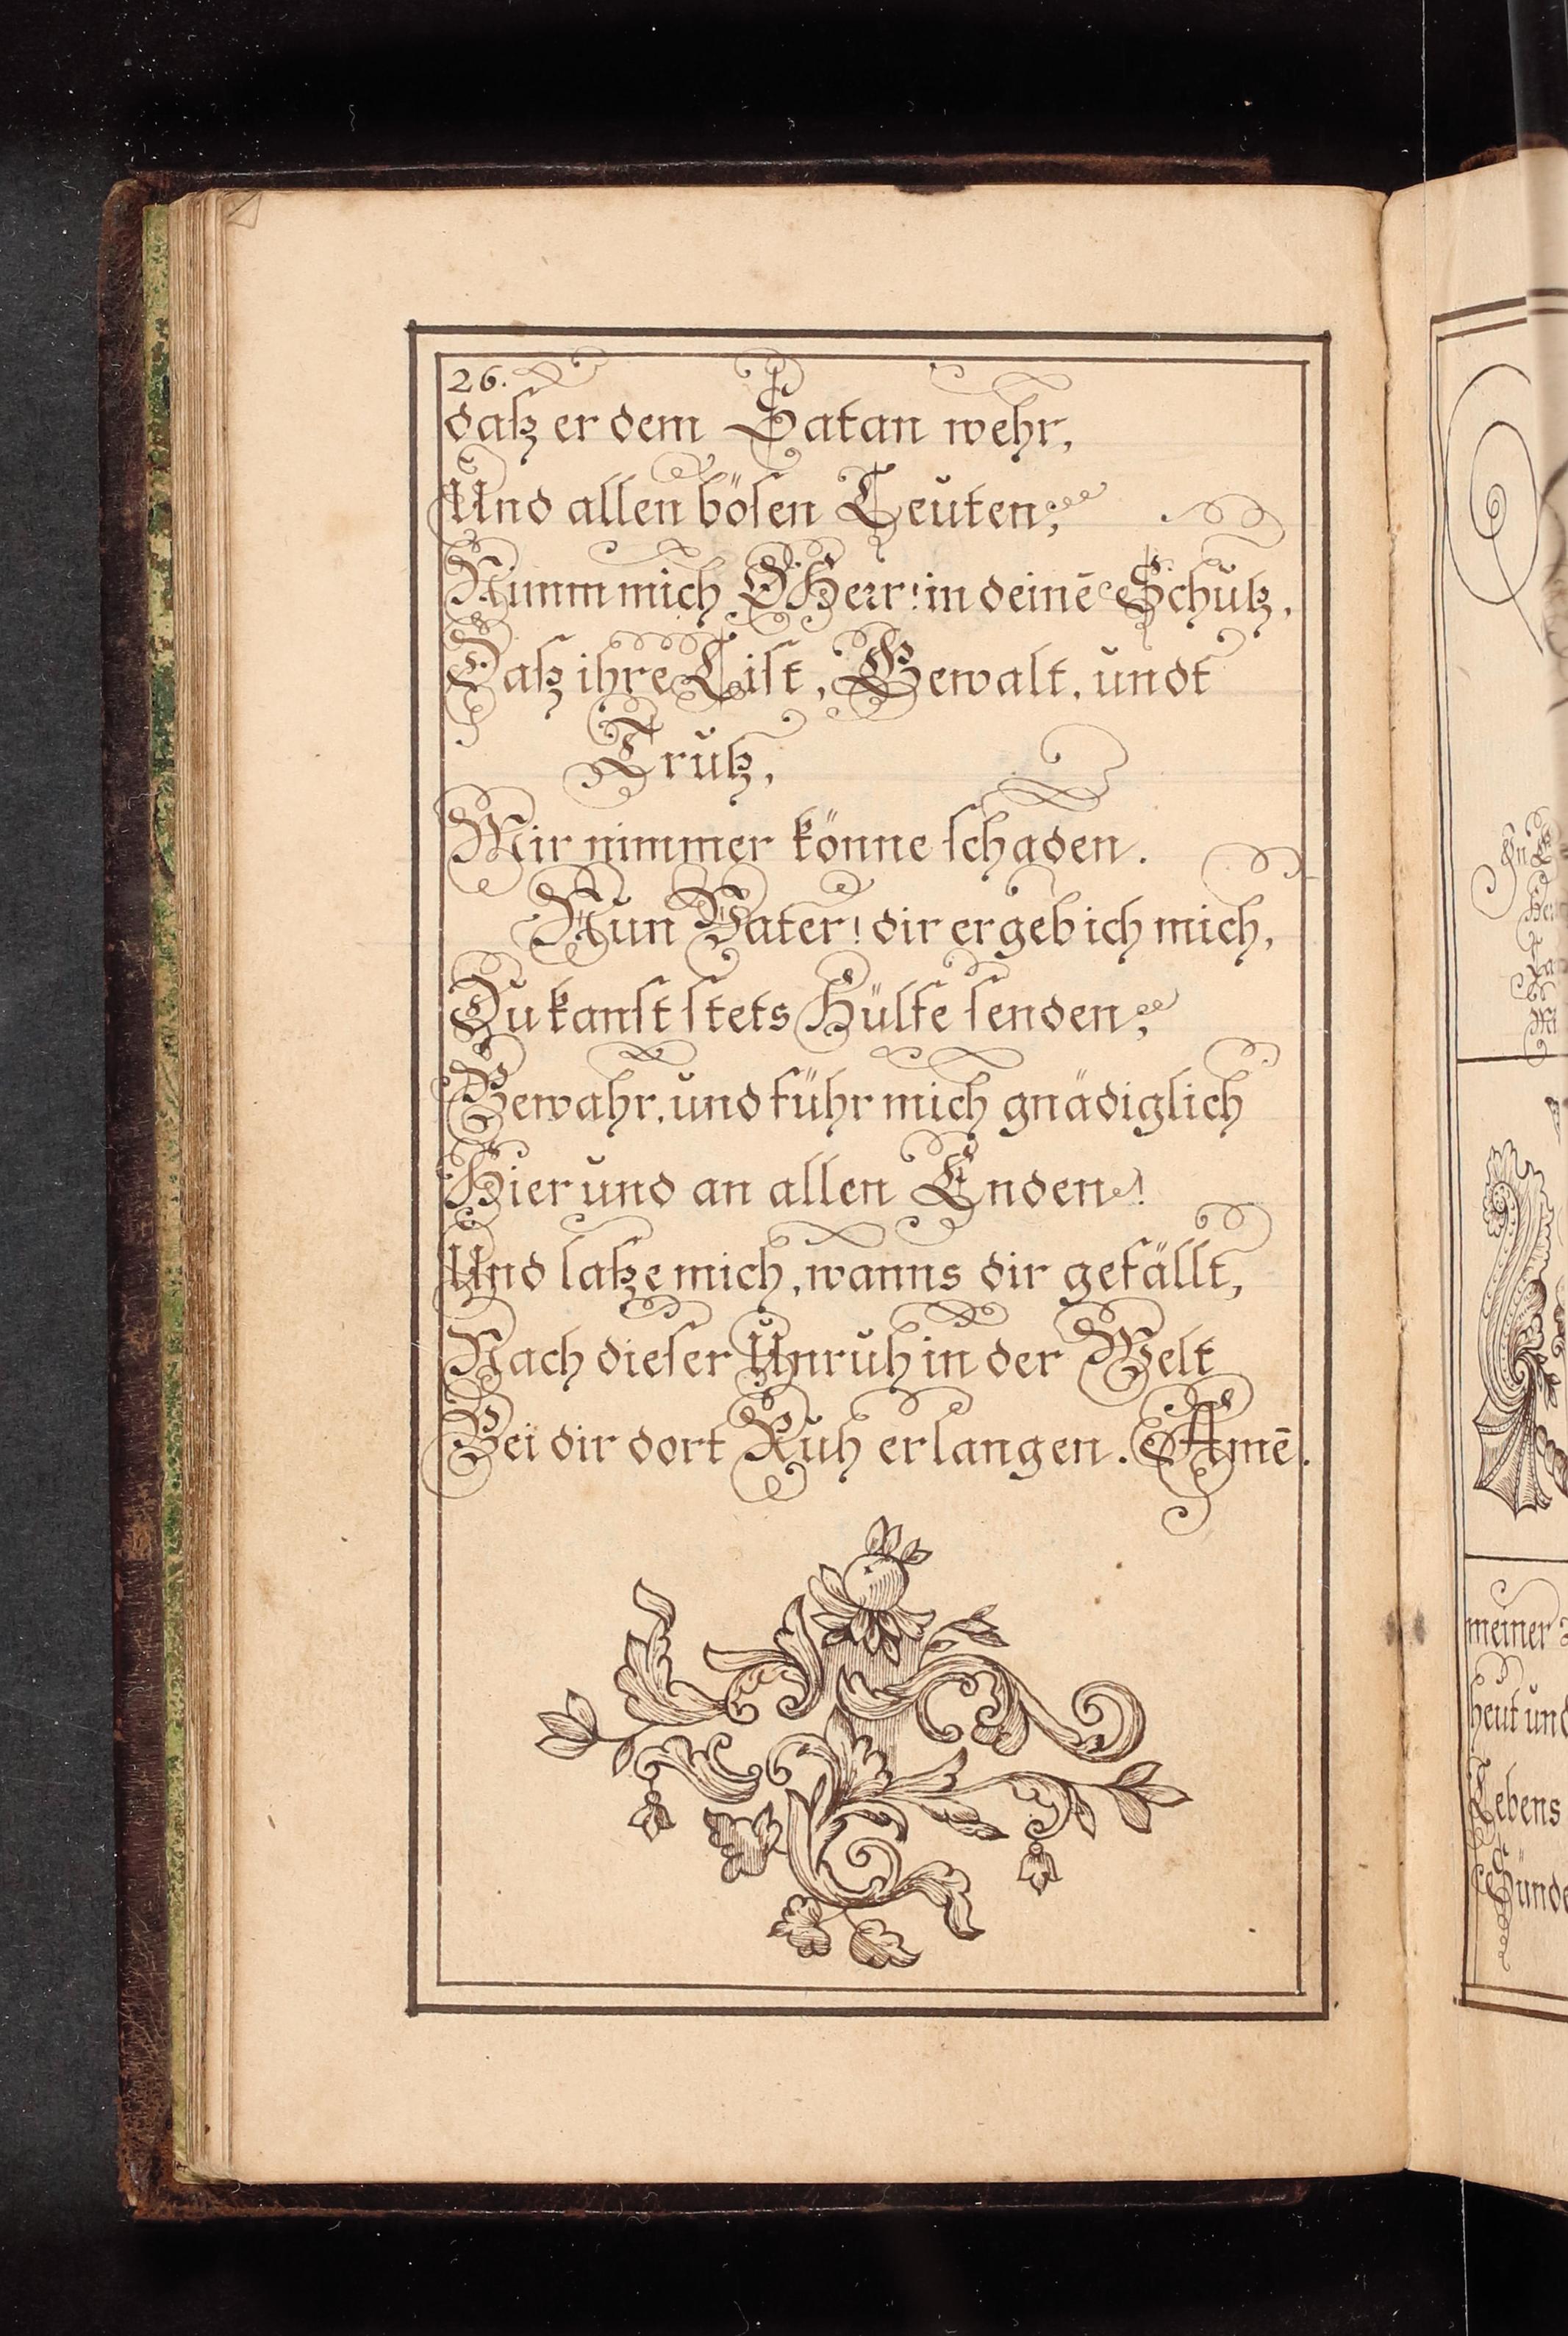 26.
daß er dem Satan wehr,
Und allen bösen Leuten;
Nimm mich O Herr! in deinē Schutz,
Daß ihre List, Gewalt, undt
Trutz,
Mir nimmer könne schaden.
Nun Vater! dir ergeb ich mich,
Du kanst stets Hülfe senden;
Bewahr, und führ mich gnädiglich
Hier und an allen Enden!
Und laße mich, wanns dir gefällt,
Nach dieser Unruh in der Welt
Bei dir dort Ruh erlangen. Amē.
meiner
heut und
Lebens
Sünde